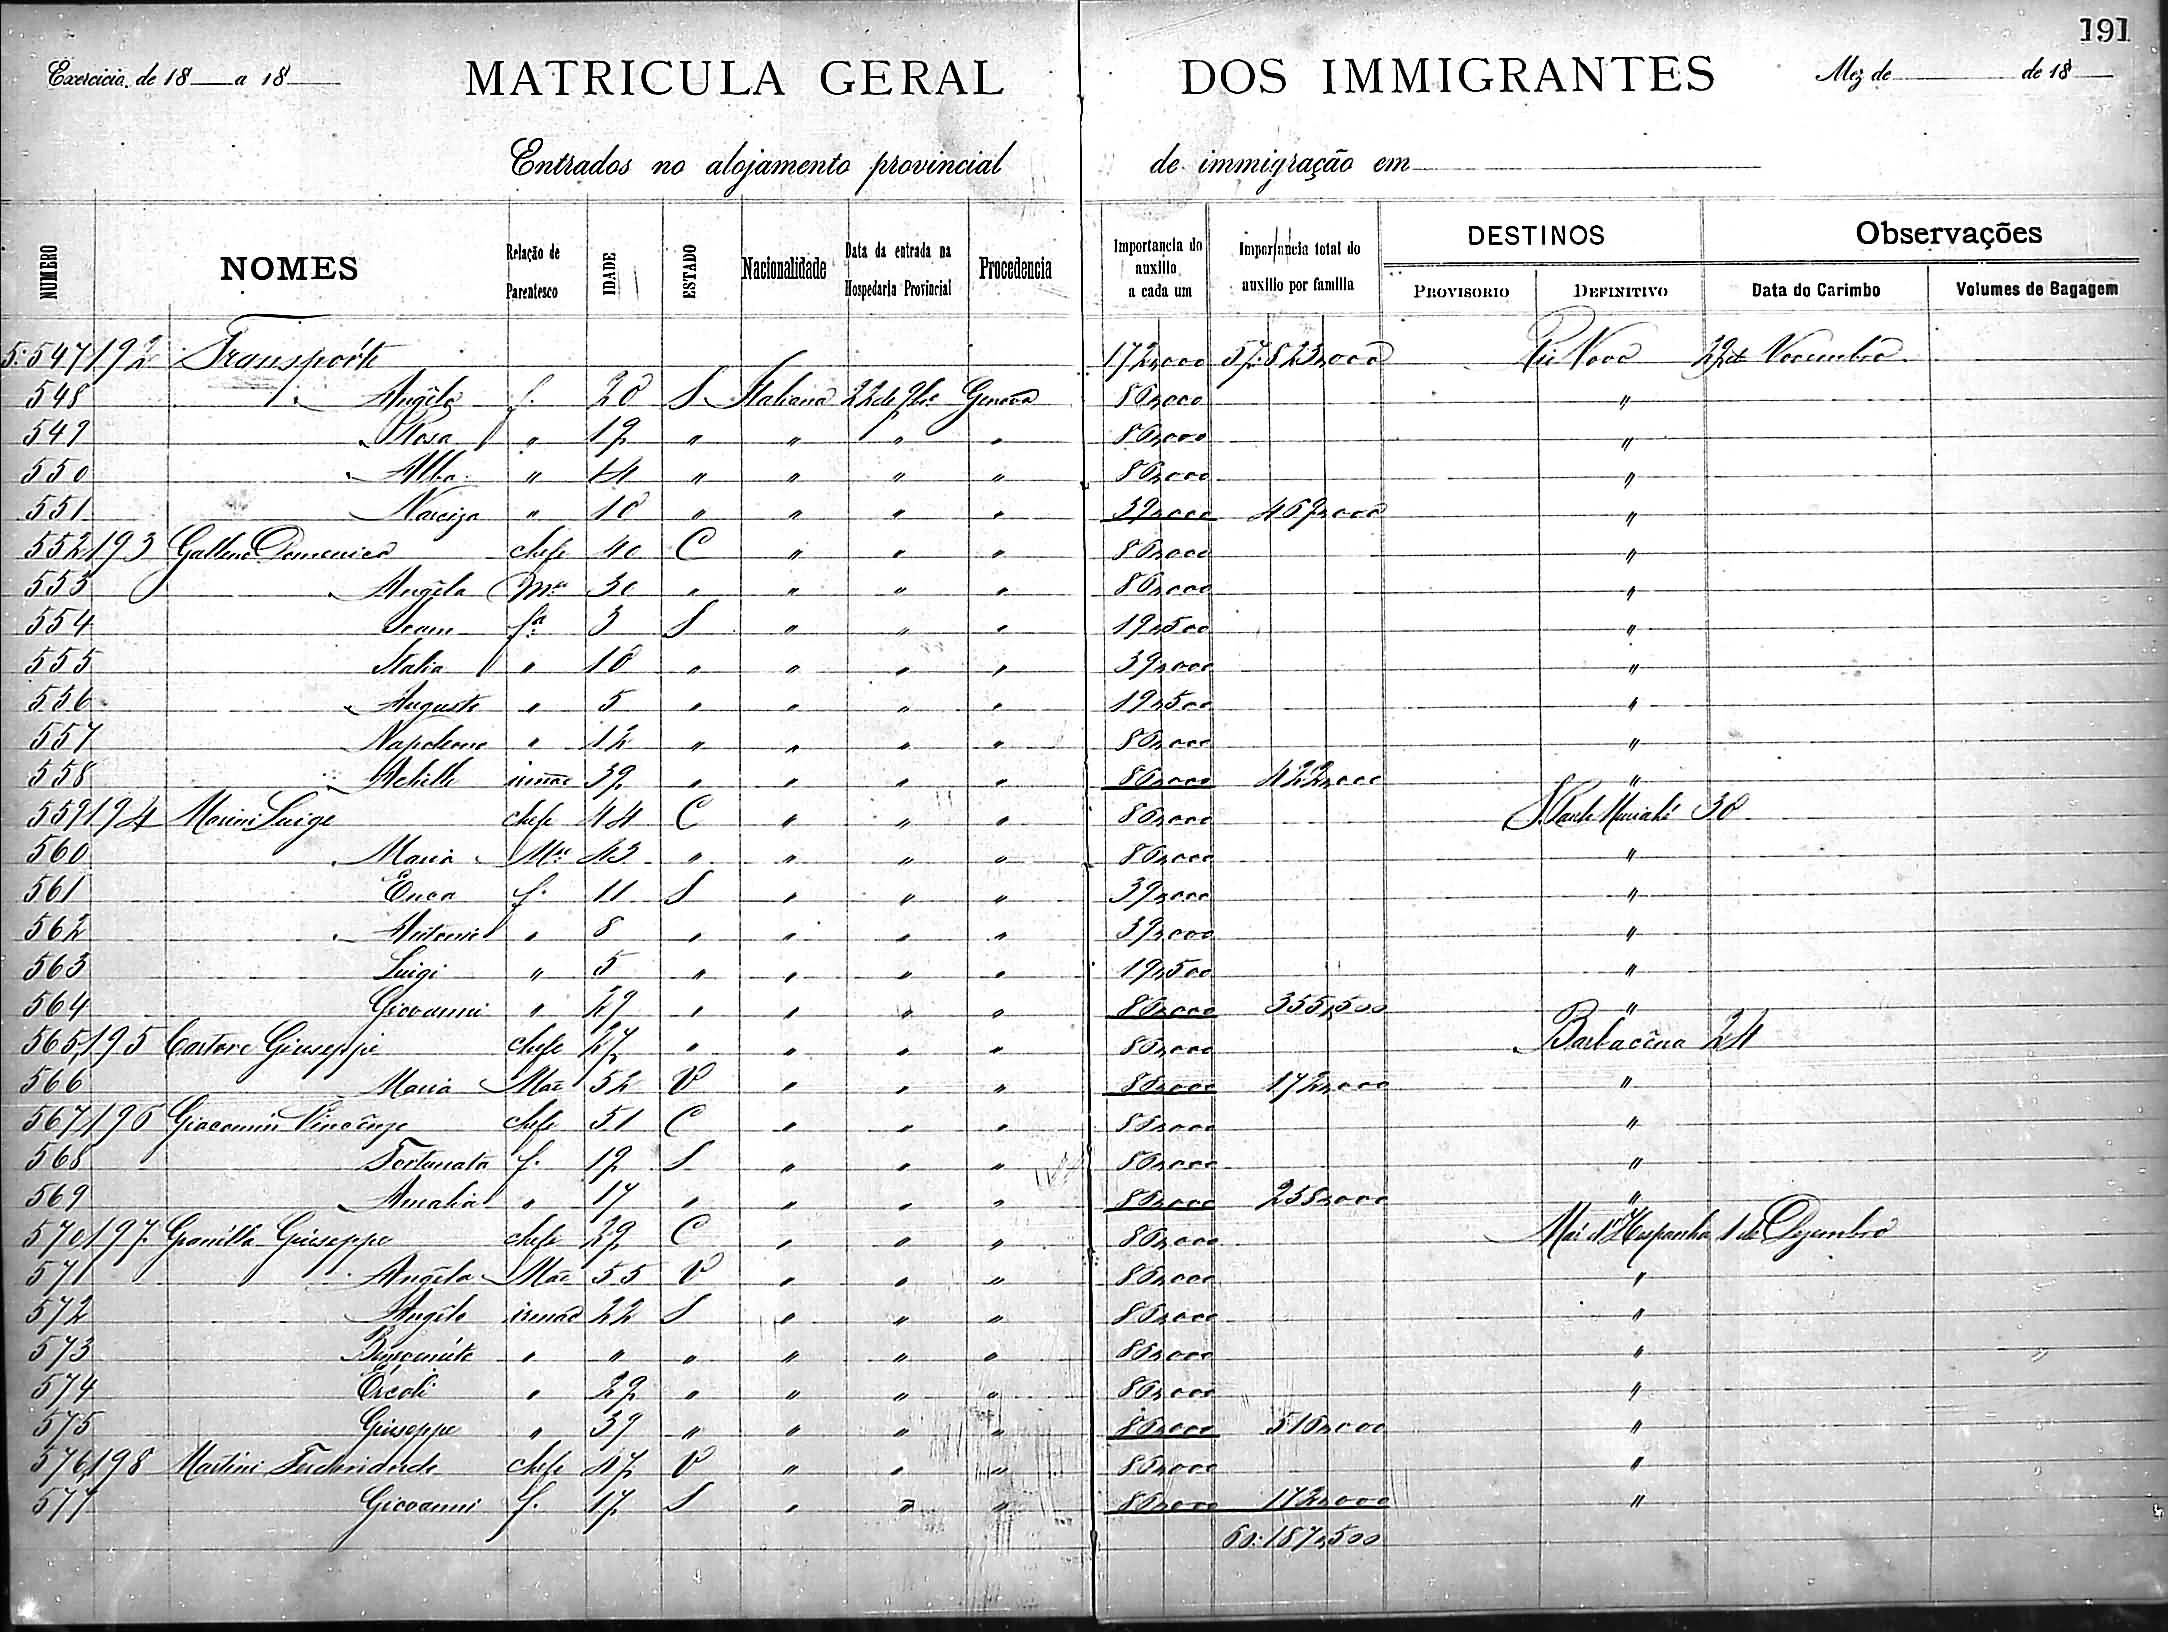 191
Exercicio de 18 a 18 MATRICULA GERAL DOS IMMIGRANTES Mez de de 18
Entrados no alojamento provincial de immigração em
NUMERO NOMES Relação de Parentesco IDADE ESTADO Nacionalidade Data da entrada na Hospedaria Provincial Procedencia Importancia do auxilio a cada um Importancia total do auxilio por familia DESTINOS PROVISORIO DEFINITIVO Observações Data do Carimbo Volumes de Bagagem
5:547 192 Transporte 172,000 57:823,000 Nova 22 de Novembro
548 " Angela f. 20 S Italiana 22 de 9bro Genova 86,000 "
549 " Rosa " 19 " " " " 86,000 "
550 " Alba " 14 " " " " 86,000 "
551 Narciza " 10 " " " " 39,000 469,000 "
552 193 Domenico chefe 40 C " " " 86,000 "
553 " Angela Mer 30 " " " " 86,000 "
554 fa 3 S " " " 19,500 "
555 Italia " 10 " " " " 39,000 "
556 " Augusto " 5 " " " " 19,500 "
557 Napoleone " 12 " " " " 86,000 "
558 " Achille irmão 39 " " " " 86,000 422,000 "
559 194 Luige chefe 44 C " " " 86,000 S. Paulo Muriahé 30
560 " Maria Mer 43 " " " " 86,000 "
561 f. 11 S " " " 39,000 "
562 " Antonio " 8 " " " " 39,000 "
563 Luigi " 5 " " " " 19,500 "
564 Giovanni " 29 " " " " 86,000 355,500 "
565 195 Giuseppe chefe 27 " " " " 86,000 Barbacena 24
566 Maria Mãe 52 V " " " 86,000 172,000 "
567 196 Giacomini Vincenzo chefe 51 C " " " 86,000 "
568 Fortunata f. 19 S " " " 86,000 "
569 " Amalia " 17 " " " " 86,000 258,000 "
570 197 Giuseppe chefe 29 C " " " 86,000 Mar d'Hespanha 1 de Dezembro
571 " Angela Mãe 55 V " " " 86,000 "
572 " Angelo irmão 22 S " " " 86,000 "
573 Benvenuto " " " " " " 86,000 "
574 Ercoli " 29 " " " " 86,000 "
575 Giuseppe " 39 " " " " 86,000 516,000 "
576 198 Martini chefe 47 V " " " 86,000 "
577 Giovanni f. 17 S " " " 86,000 172,000 "
60:187,500